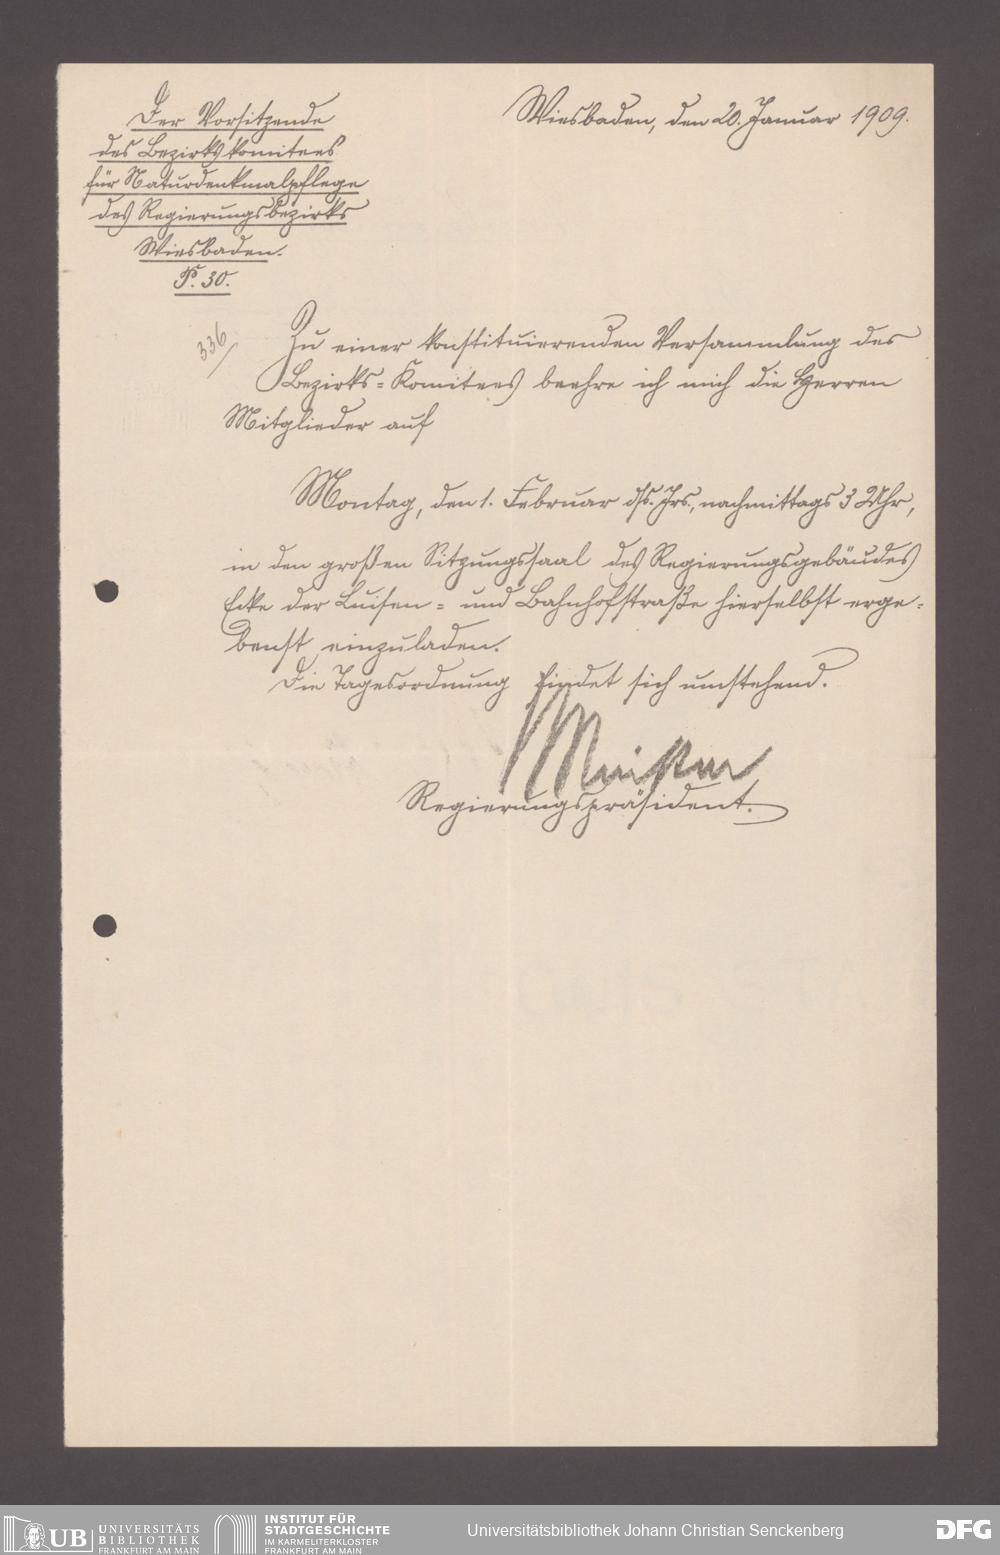 Der Vorsitzende
des Bezirkskomitees
für Naturdenkmalpflege
des Regierungsbezirks
Wiesbaden.
P. 30.
Wiesbaden, den 20. Januar 1909.
336/
Zu einer konstituierenden Versammlung des
Bezirks=Komitees beehre ich mich die Herren
Mitglieder auf
Montag, den 1. Februar ds. Jrs., nachmittags 3 Uhr,
in den großen Sitzungssaal des Regierungsgebäudes
Ecke der Luisen= und Bahnhofstraße hierselbst erge=
benst einzuladen.
Die Tagesordnung findet sich umstehend.
Meister
Regierungspräsident.
UB UNIVERSITÄTS
BIBLIOTHEK
FRANKFURT AM MAIN
INSTITUT FÜR
STADTGESCHICHTE
IM KARMELITERKLOSTER
FRANKFURT AM MAIN
Universitätsbibliothek Johann Christian Senckenberg
DFG